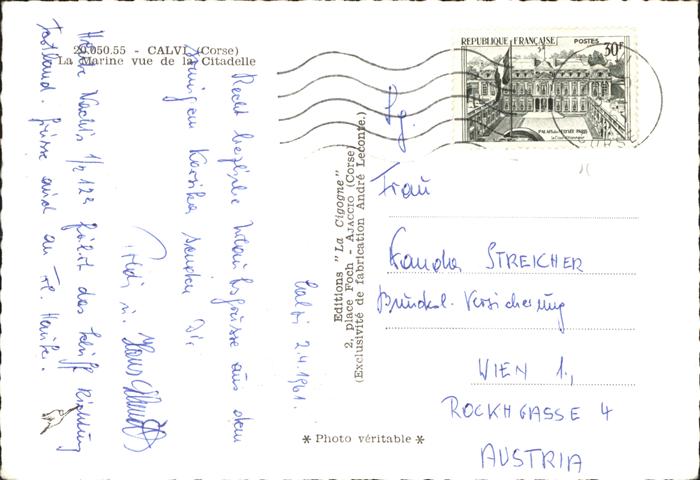 20.050.55 - CALVI (Corse)
La Marine vue de la Citadelle
REPUBLIQUE FRANÇAISE
POSTES
30F
PALAIS de l'ELYSÉE PARIS
CORSE
Editions "La Cigogne"
2, place Foch - AJACCIO (Corse)
(Exclusivité de fabrication André Leconte.)
Calvi 2.4.1961.
Recht herzliche Urlaubsgrüsse aus dem
Korsika senden Dir
u.
Heute Nachts 1/2 12h fährt das Schiff Richtung
Festland. Grüsse auch an Frl.
Frau
STREICHER
Bundesl. Versicherung
WIEN 1.,
ROCKHGASSE 4
AUSTRIA
* Photo véritable *